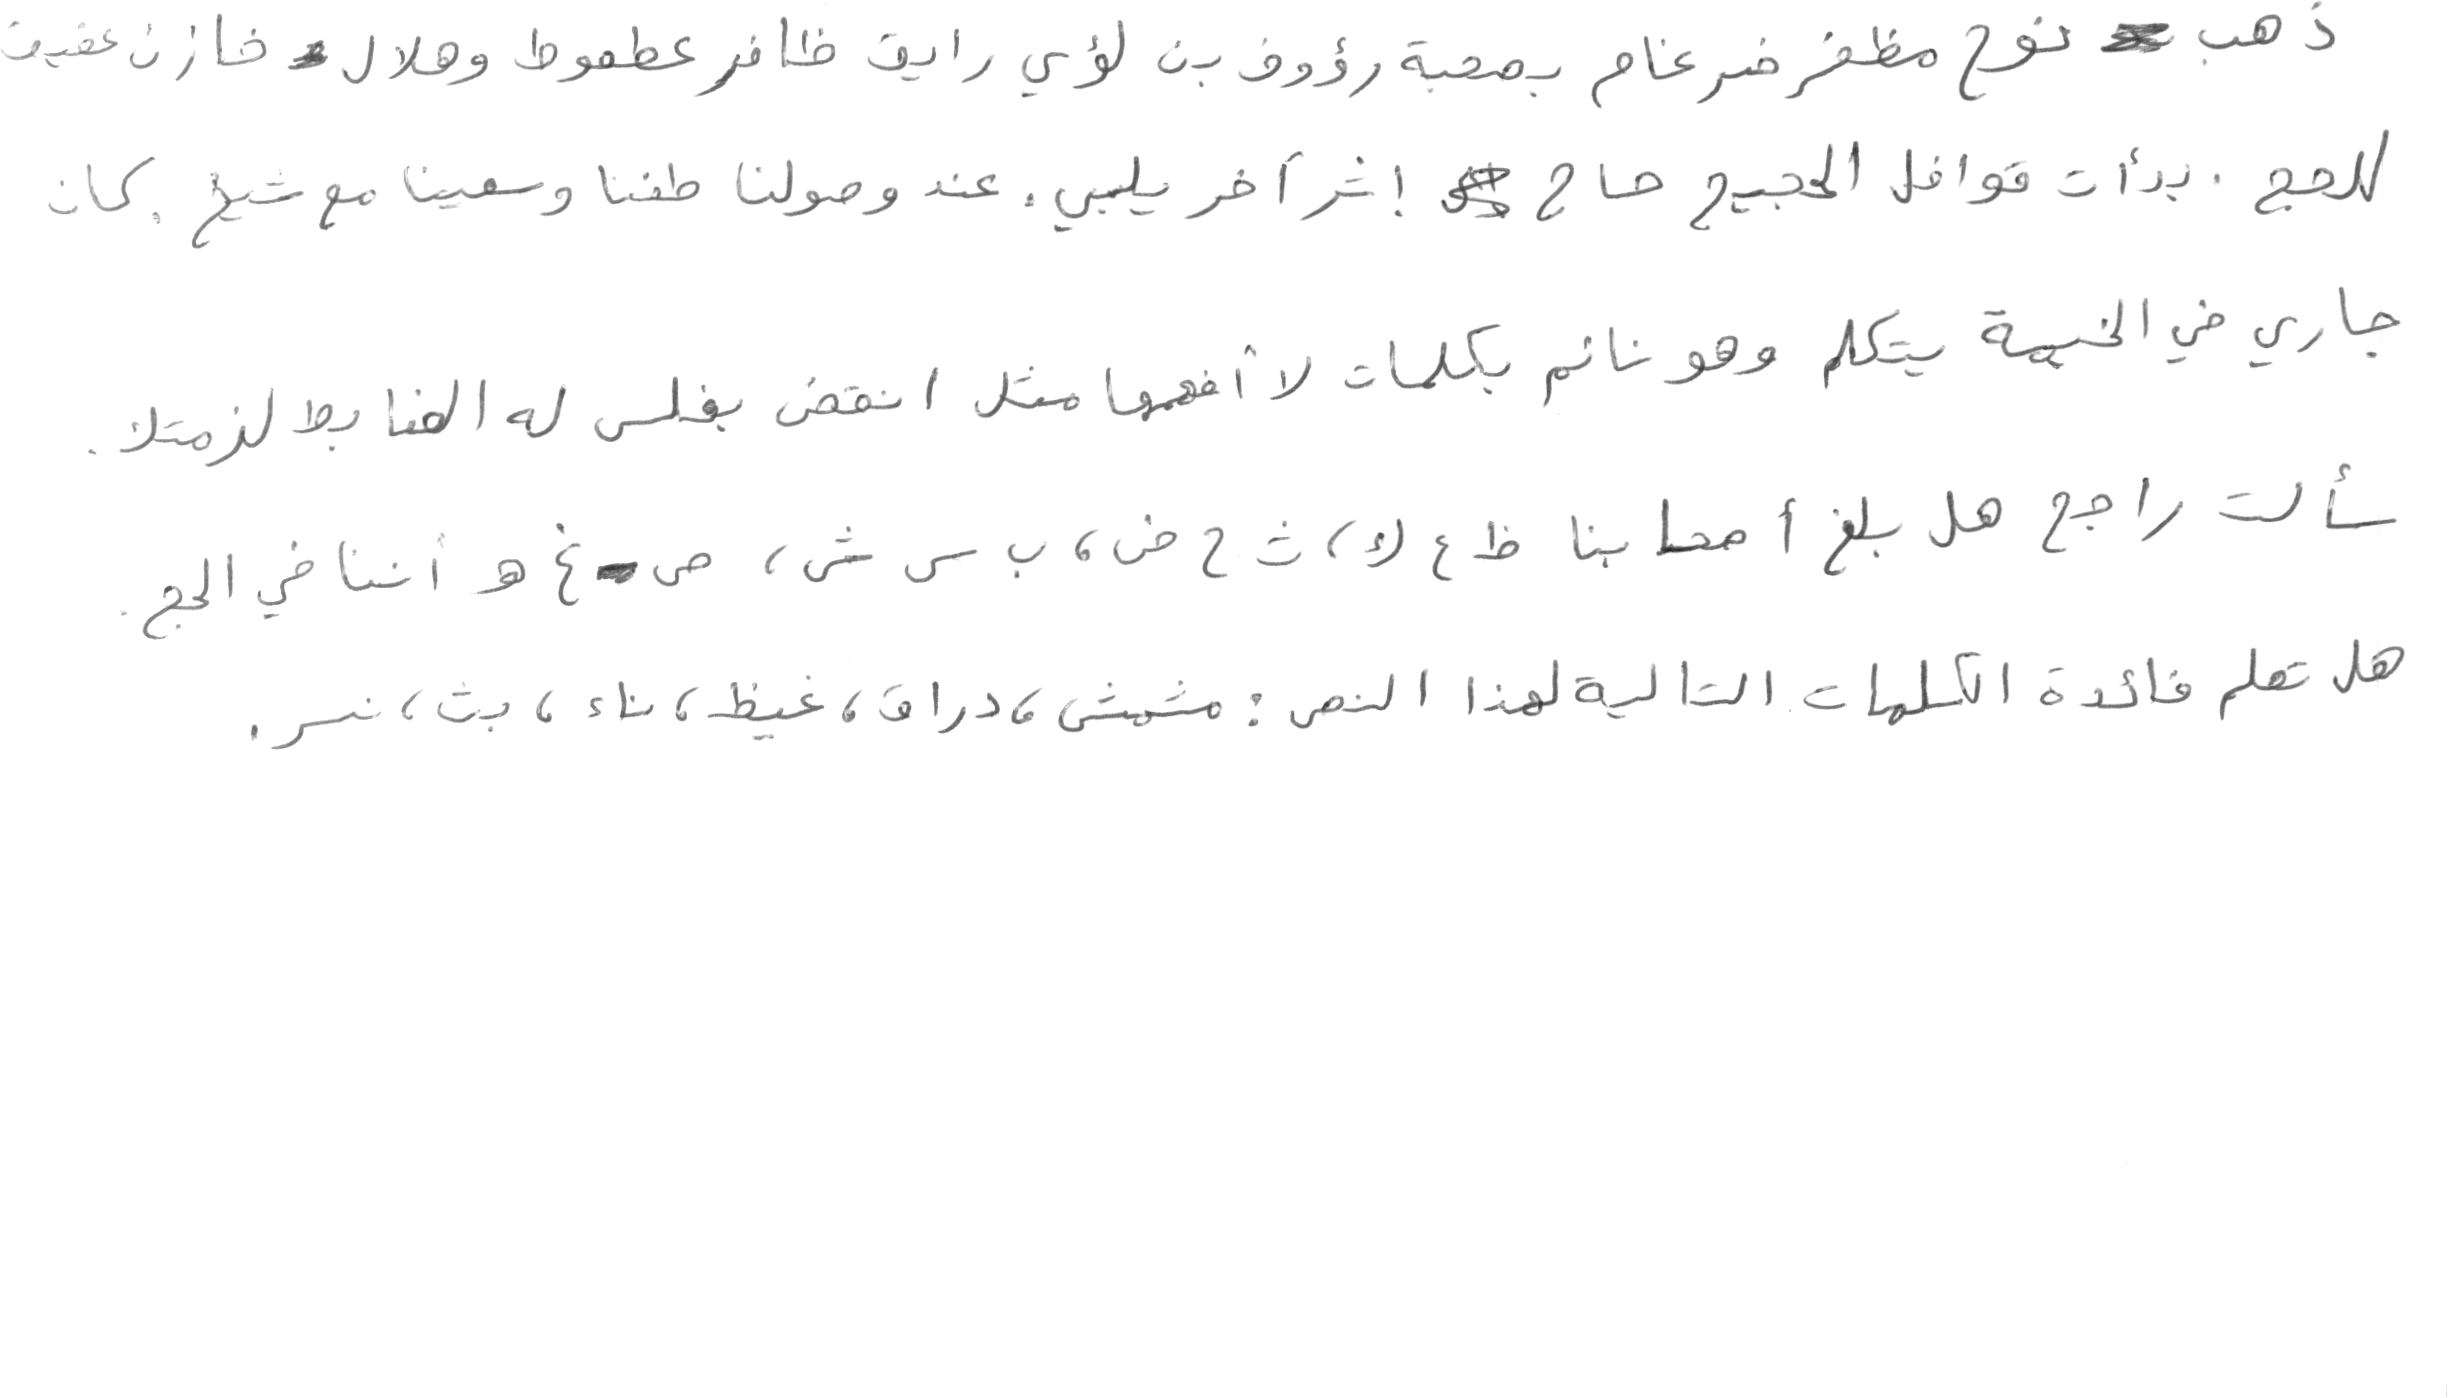 ذهب نوح مظفر ضرغام بصحبة رؤوف بن لؤي رايق ظافر عطعوط وهلال خازن عفيف
للحج . بدأت قوافل الحجيج حاج إثر آخر يلبي . عند وصولنا طفنا وسعينا مع شيخ . كان
جاري في الخيمة يتكلم وهو نائم بكلمات لا أفهمها مثل انقض بغلس له الضابط لذمتلا .
سألت راجح هل بلغ أصحابنا ظ ع ك ، ث ح ض ، ب س ش ، ص غ هـ أننا في الحج .
هل تعلم فائدة الكلمات التالية لهذا النص : مشمش ، دراق ، غيظ ، ناء ، بث ، نسر .